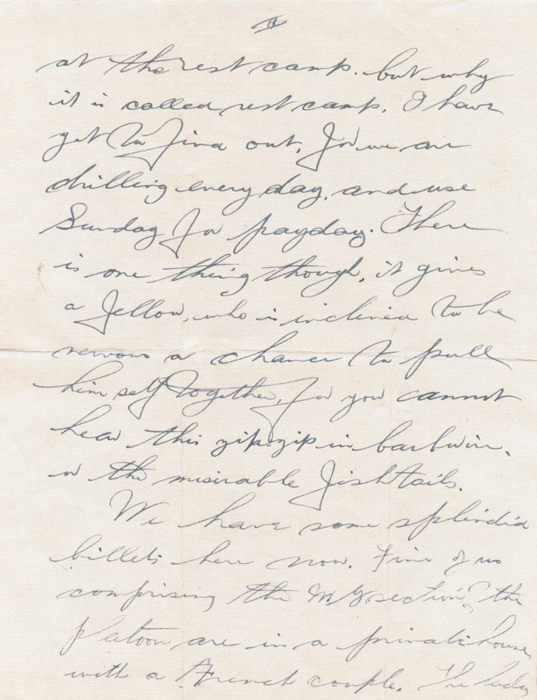 II
at the rest camp. but why
it is called rest camp. I have
yet to find out, for we are
drilling every day, and use
Sunday for payday. There
is one thing though, it gives
a fellow, who is inclined to be
nervous a chance to pull
him self together, for you cannot
hear this zip-zip in barbwire.
or the misirable fishtails.
We have some splindid
billets here now. Five of us
comprising the MG section of the
Platoon are in a private house
with a French couple. The lady